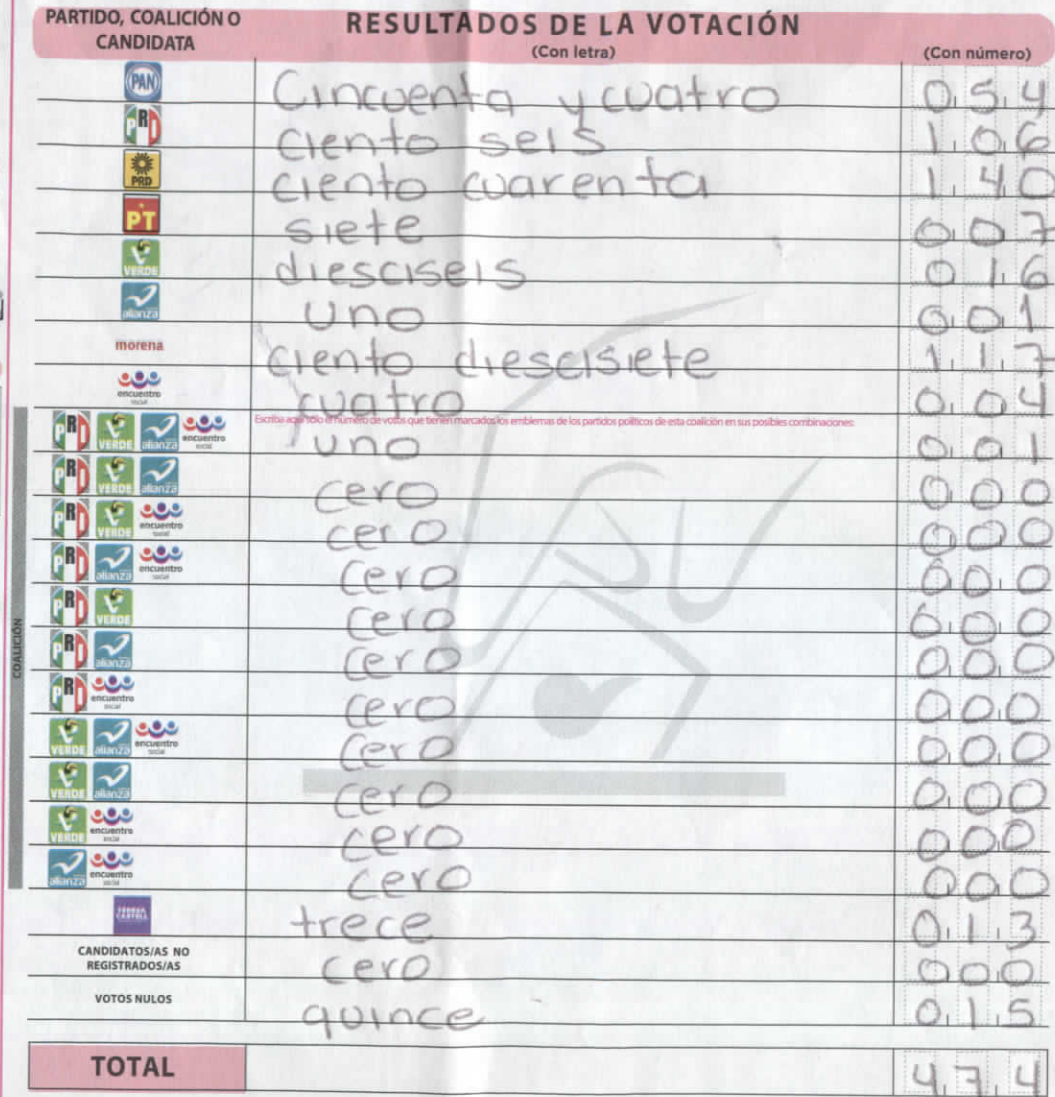 PARTIDO, COALICIÓN O CANDIDATA RESULTADOS DE LA VOTACIÓN
(Con letra) (Con número)
PAN Cincuenta y cuatro 054
PRI ciento seis 106
PRD ciento cuarenta 140
PT siete 007
VERDE diesciseis 016
alianza uno 001
morena ciento diescisiete 117
encuentro social cuatro 004
Escriba aquí sólo el número de votos que tienen marcados los emblemas de los partidos políticos de esta coalición en sus posibles combinaciones:
COALICIÓN
PRI VERDE alianza encuentro social uno 001
PRI VERDE alianza cero 000
PRI VERDE encuentro social cero 000
PRI alianza encuentro social cero 000
PRI VERDE cero 000
PRI alianza cero 000
PRI encuentro social cero 000
VERDE alianza encuentro social cero 000
VERDE alianza cero 000
VERDE encuentro social cero 000
alianza encuentro social cero 000
TERESA CASTELL trece 013
CANDIDATOS/AS NO REGISTRADOS/AS cero 000
VOTOS NULOS quince 015
TOTAL 474